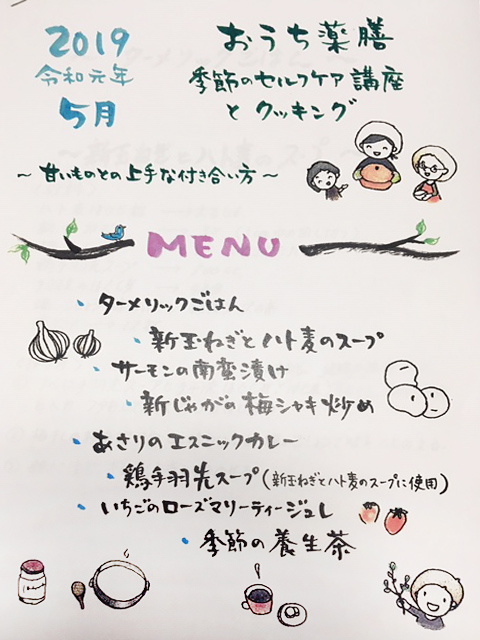 2019
令和元年
5月
おうち薬膳
季節のセルフケア講座
とクッキング
～甘いものとの上手な付き合い方～
MENU
・ターメリックごはん
・新玉ねぎとハト麦のスープ
・サーモンの南蛮漬け
・新じゃがの梅シャキ炒め
・あさりのエスニックカレー
・鶏手羽先スープ(新玉ねぎとハト麦のスープに使用)
・いちごのローズマリーティージュレ
・季節の養生茶